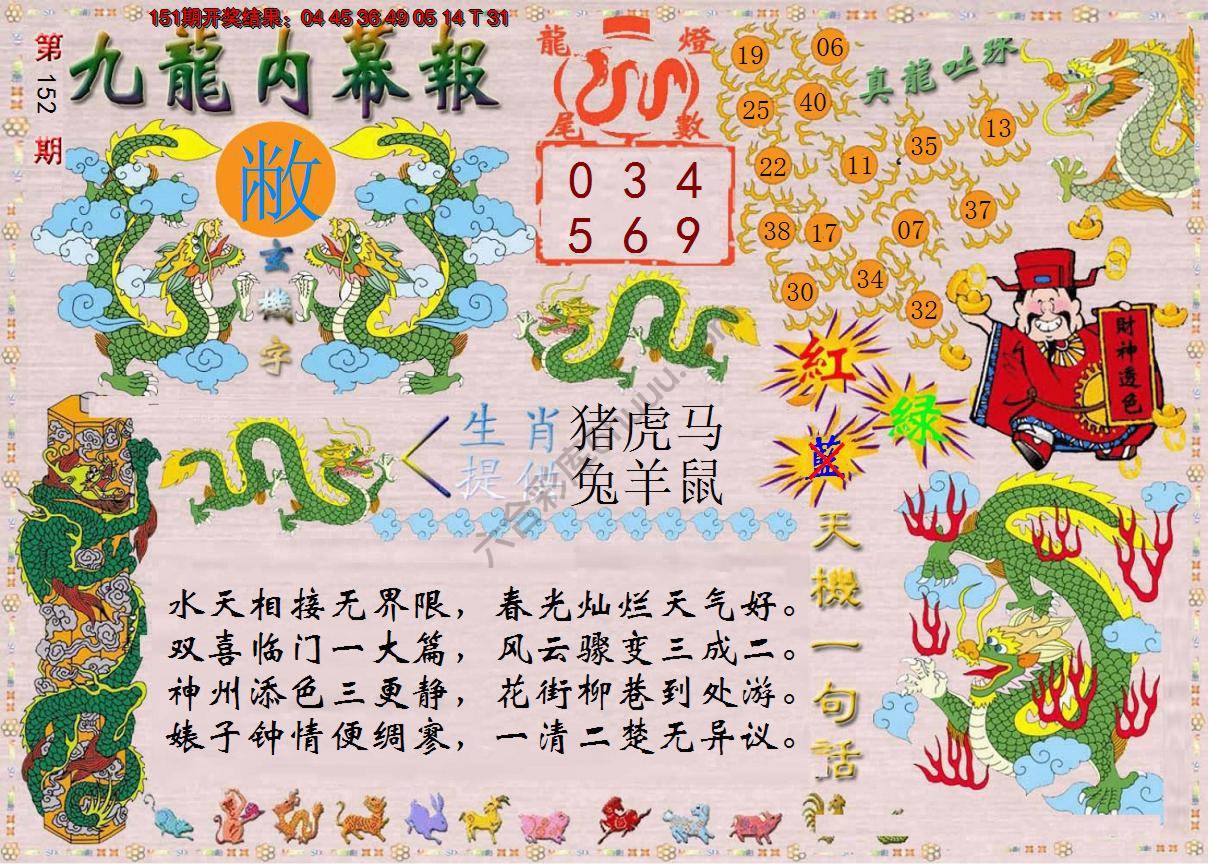 151期开奖结果：04 45 36 49 05 14 T 31
第152期
九龍内幕報
敝
玄機字
龍燈
尾數
0 3 4
5 6 9
真龍吐珠
19
06
25
40
35
13
22
11
37
38
17
07
34
30
32
財神透色
紅
綠
藍
生肖
提供
猪虎马
兔羊鼠
水天相接无界限，春光灿烂天气好。
双喜临门一大篇，风云骤变三成二。
神州添色三更静，花街柳巷到处游。
婊子钟情便绸寥，一清二楚无异议。
天機一句話